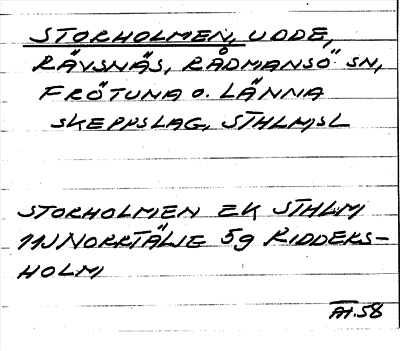 STORHOLMEN, UDDE,
RÄVSNÄS, RÅDMANSÖ SN,
FRÖTUNA O. LÄNNA
SKEPPSLAG, STHLMSL
STORHOLMEN EK STHLM
11J NORRTÄLJE 5g RIDDERS-
HOLM
AH.58